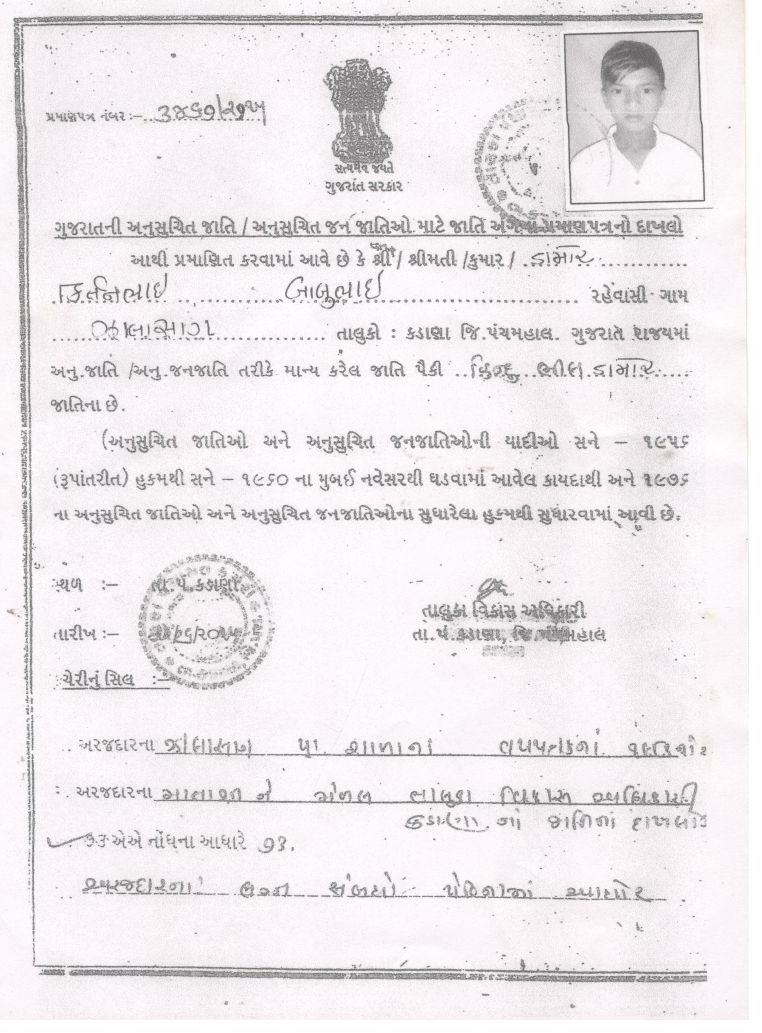 પ્રમાણપત્ર નંબર :-
સત્યમેવ જયતે
ગુજરાત સરકાર
ગુજરાતની અનુસુચિત જાતિ / અનુસુચિત જન જાતિઓ માટે જાતિ અંગેના પ્રમાણપત્રનો દાખલો
આથી પ્રમાણિત કરવામાં આવે છે કે શ્રી / શ્રીમતી /કુમાર / ડામોર
બાબુભાઇ રહેવાસી ગામ
ઝાલાસાગ તાલુકો : કડાણા જિ.પંચમહાલ. ગુજરાત રાજયમાં
અનુ.જાતિ /અનુ.જનજાતિ તરીકે માન્ય કરેલ જાતિ પૈકી હિન્દુ ભીલ ડામોર
જાતિના છે.
(અનુસુચિત જાતિઓ અને અનુસુચિત જનજાતિઓની યાદીઓ સને – ૧૯૫૬
(રૂપાંતરીત) હુકમથી સને – ૧૯૬૦ ના મુબઈ નવેસરથી ઘડવામાં આવેલ કાયદાથી અને ૧૯૭૬
ના અનુસુચિત જાતિઓ અને અનુસુચિત જનજાતિઓના સુધારેલા હુકમથી સુધારવામાં આવી છે.
સ્થળ :– તા.પં.કડાણા
તાલુકા વિકાસ અધિકારી
તારીખ :–
તા.પં.કડાણા, જિ.પંચમહાલ
ચેરીનું સિલ :–
અરજદારના ઝાલાસાગ પ્રા. શાળાના વયપત્રકનાં
અરજદારના તાલુકા વિકાસ અધિકારી
કડાણા નો જાતિનાં
૭૩ એએ નોંધના આધારે ૭૩.
અરજદારનાં લગ્ન સંબંધો